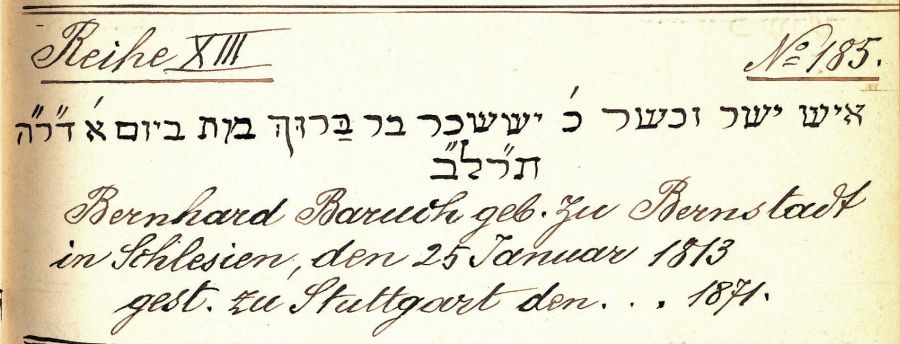 Reihe XIII
No 185.
איש ישר וכשר כ׳ יששכר בר בַּרוּךְ מות ביום א׳ ד״ר״ה
ת״רל״ב
Bernhard Baruch geb. zu Bernstadt
in Schlesien, den 25 Januar 1813
gest. zu Stuttgart den . . . 1871.